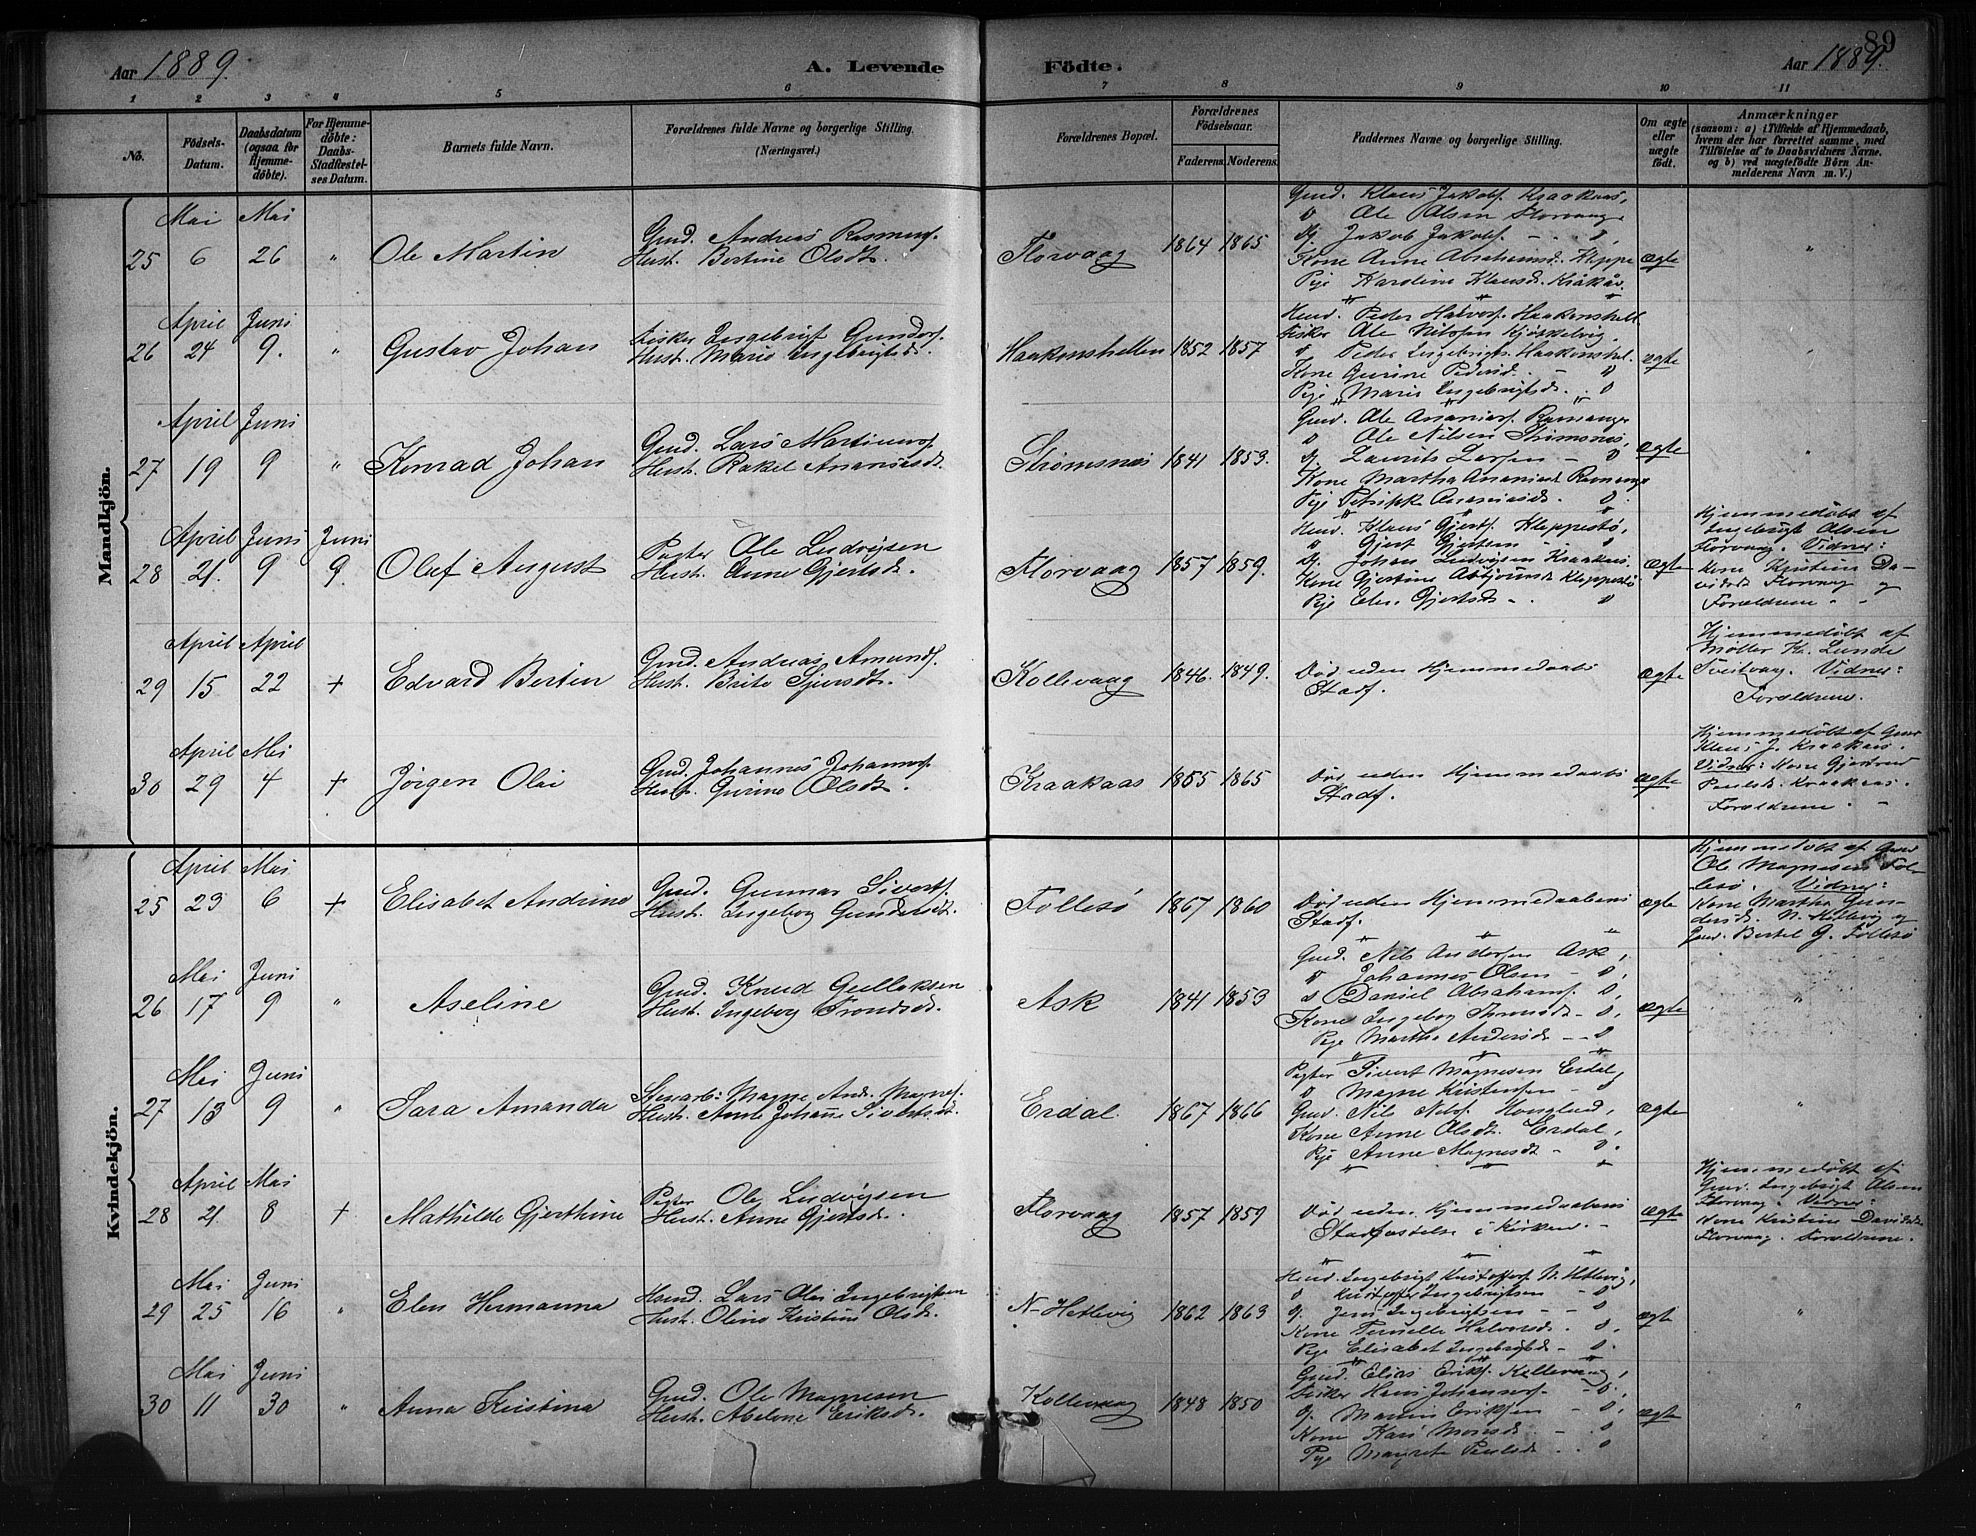 Aar 1889.
A. Levende Födte.
Aar 1889.
89
1 2 3 4 5 6 7 8 9 10 11
No.
Födsels-Datum.
Daabsdatum (ogsaa for Hjemmedöbte).
For Hjemmedöbte: Daabs-Stadfæstelses Datum.
Barnets fulde Navn.
Forældrenes fulde Navne og borgerlige Stilling. (Næringsvei.)
Forældrenes Bopæl.
Forældrenes Födselsaar.
Faderens. Moderens.
Faddernes Navne og borgerlige Stilling.
Om ægte eller uægte født.
Anmærkninger
(saasom: a) i Tilfælde af Hjemmedaab, hvem der har forrettet samme, med Tilföielse af to Daabsvidners Navne. og b) ved uægtefödte Börn Anmelderens Navn m. V.)
Mandkjön.
Mai Mai
25 6 26 " Ole Martin
Gmd. Andreas Rasmusf.
Hust. Bertine Olsdt.
Florvaag 1864 1865
Gmd. Klaus Jakobs. Kraakaas,
Ole Olsen Florvaag,
Jakob Jakobs.
Kone Anne Abrahamsd. Kleppe
Pige Karoline Klausd. Kråkås.
ægte "
April Juni
26 24 9. " Gustav Johan
Fisker Ingebrigt Gundersf.
Hust. Marie Ingebrigtsd.
Haakonshellen 1852 1857
Peder Halvors. Haakonshell
Fisker Ole Nilssen
Peder Ingebrigts. Haakonshel.
Kone Gurine Pedersd.
Pige Marie Ingebrigtsd.
ægte
April Juni
27 19 9 " Konrad Johan
Gmd. Lars Martinusf.
Hust. Rakel Ananiasd.
Strømsnes 1841 1853.
Gmd. Ole Ananiasf.
Ole Nilsen Strømsnes,
Laurits Larsen
Kone Martha Ananiasd.
Pige Ananiasd.
ægte "
April Juni Juni
28 21. 9 9. Oluf August
Pagter Ole Ludvigsen
Hust. Anne Gjertsd.
Florvaag 1857 1859.
Klaus Gjertf. Kleppestø,
Gjert Gjertsen
Johan Ludvigsen Kraakaas.
Kone Gjertine Asbjørnsd. Kleppestø
Pige Elen Gjertsd.
ægte
Hjemmedøbt af
Ingebrigt Olsen
Florvaag. Vidner:
Kone Kristine Da-
vidsd. Florvaag og
Forældrene
April April
29 15 22 + Edvard Bertin
Gmd. Andreas Amundf.
Hust. Brite Sjursdt.
Kollevaag 1846. 1849.
Død uden Hjemmedaabs
Stadf.
ægte
Hjemmedøbt af
Møller Lunde
Tveitvaag. Vidner:
Forældrene.
April Mai
30 29 4 + Jørgen Olai
Gmd. Johannes Johannesf.
Hust. Gurine Olsdt.
Kraakaas 1855 1865
Død uden Hjemmedaabs
Stadf.
ægte
Hjemmedøbt af Gmd
Klaus J. Kraakaas.
Vidner: Kone
Paulsd. Kraakaas.
Forældrene.
Kvindekjön.
April Mai
25 23 6 + Elisabet Andrine
Gmd. Gunnar Sivertf.
Hust. Ingeborg Gundersdt.
Follesø 1867 1860
Død uden Hjemmedaabens
Stadf.
ægte
Hjemmedøbt af Gmd
Ole Magnesen Fol-
lesø. Vidner:
Kone Martha Gun-
dersd. N. Hetlevig og
Gmd. Bertel G. Follesø
Mai Juni
26 17 9 " Aseline
Gmd. Knud Gullaksen
Hust. Ingeborg Trondsd.
Ask 1841 1853
Gmd. Nils Andersen Ask,
Johannes Olsen
Daniel Abrahams.
Kone Ingeborg
Pige Martha Andersd.
ægte "
Mai Juni
27 13 9 " Sara Amanda
Magne And. Magnesf.
Hust. Ane Johanne Sivertsdt.
Erdal 1867 1866
Pagter Sivert Magnesen Erdal,
Magne Kristensen
Gmd. Nils Nilsf.
Kone Anne Olsdt. Erdal,
Pige Anne Magnesdt
ægte "
April Mai
28 21. 8 + Mathilde Gjerthine
Pagter Ole Ludvigsen
Hust. Anne Gjertsd.
Florvaag 1857 1859
Død uden Hjemmedaabens
Stadfæstelse i Kirken.
ægte
Hjemmedøbt af
Gmd. Ingebrigt Olsen
Florvaag. Vidner:
Kone Kristine Davidsd.
Florvaag. Forældrene.
Mai Juni
29 25 16 " Elen Hermanna
Lars Olai Ingebrigtsen
Hust. Oline Kristine Olsd.
N-Hetlevig 1862 1863
Ingebrigt Kristoffers. N. Hetlevig,
Kristoffer Ingebrigtsen
Jens Ingebrigtsen
Kone Pernelle Halvorsd.
Pige Elisabet Ingebrigtsd.
ægte "
Mai Juni
30 11 30 " Anna Kristina
Gmd. Ole Magnesen
Hust. Abelone Eriksd.
Kollevaag 1848 1850
Gmd. Elias Eriks. Kollevaag,
Fisker Hans Johannesf.
Martin Eriksen
Kone Kari Monsd.
Pige Magrete Paulsd.
ægte "